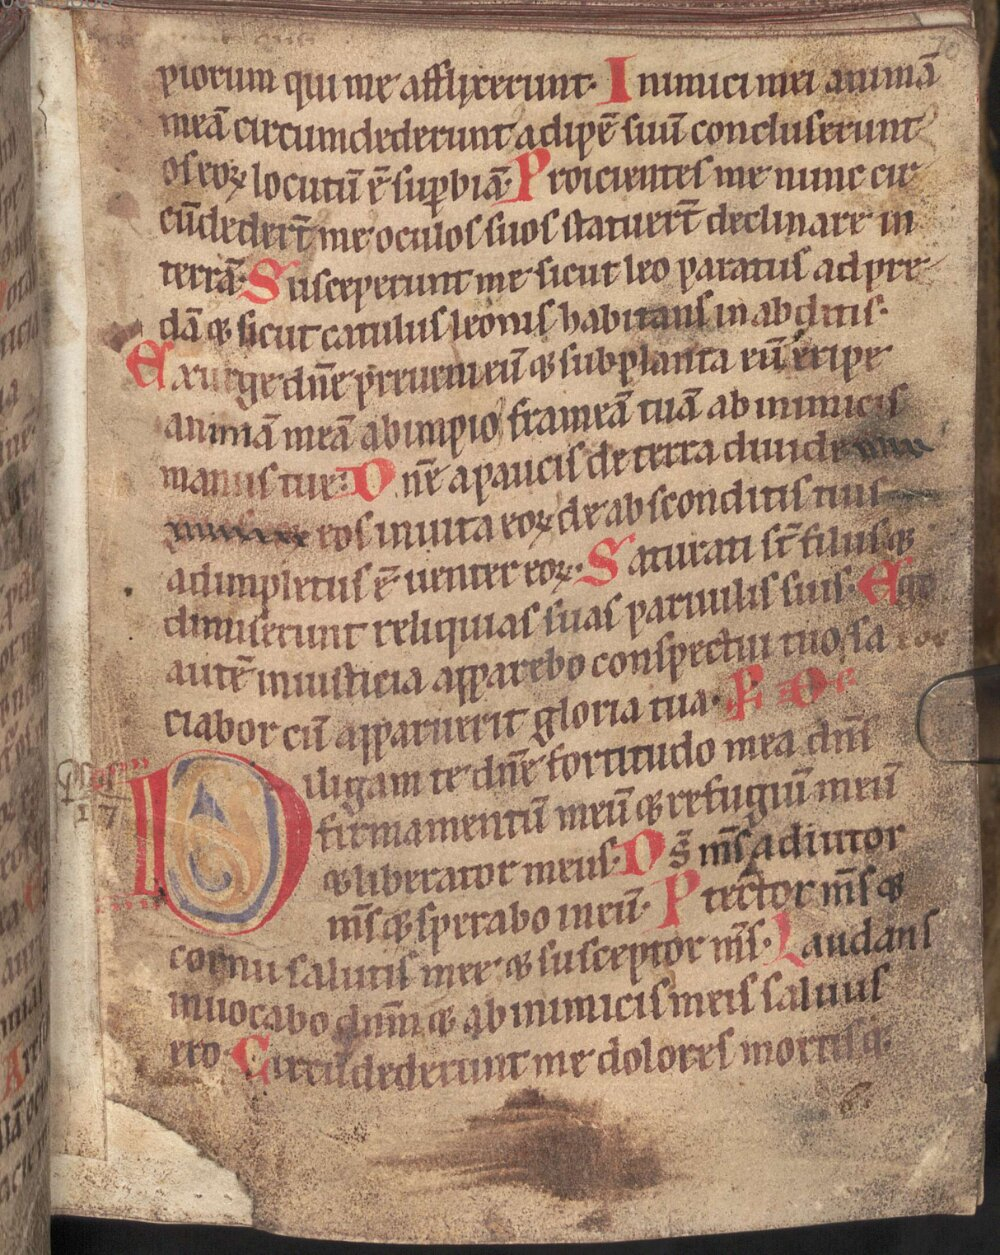 piorum qui me afflixerunt. Inimici mei animā
meā circumdederunt adipē suū concluserunt
os eoꝝ locutū ē suꝑbiā. Proicientes me nunc cir
cūdeder̄t me oculos suos statuer̄t declinare in
terrā. Susceperunt me sicut leo paratus ad pre
dā & sicut catulus leonis habitans in abditis.
Exurge dn̄e p̄reueni eū & subplanta eū eripe
animā meā ab impio frameā tuā ab inimicis
manus tue. Dn̄e a paucis de terra diuide
eos in uita eoꝝ de absconditis tuis
adimpletus ē uenter eoꝝ. Saturati st̄ filiis &
dimiserunt reliquias suas paruulis suis. Ego
autē in iusticia apparebo conspectui tuo, sa
ciabor cū apparuerit gloria tua.
Diligam te dn̄e fortitudo mea dn̄s
firmamentū meū & refugiū meū
17
& liberator meus. Ds̄ ms̄ adiutor
ms̄ & sperabo in eū. Ptector ms̄ &
cornu salutis mee & susceptor ms̄. Laudans
inuocabo dn̄m & ab inimicis meis saluus
ero. Circūdederunt me dolores mortis q.